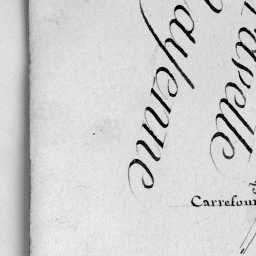 ayenne
avelle
Carrefour